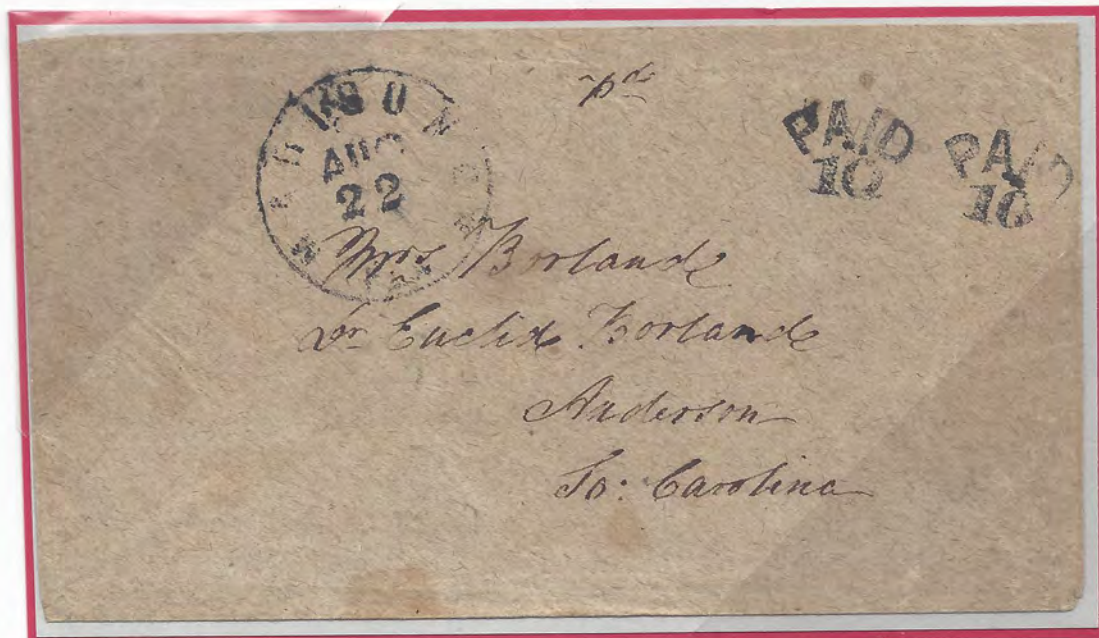 MADISON
AUG
22
pd
PAID
10
PAID
10
Mrs Borland
Dr Euclid Borland
Anderson
So: Carolina